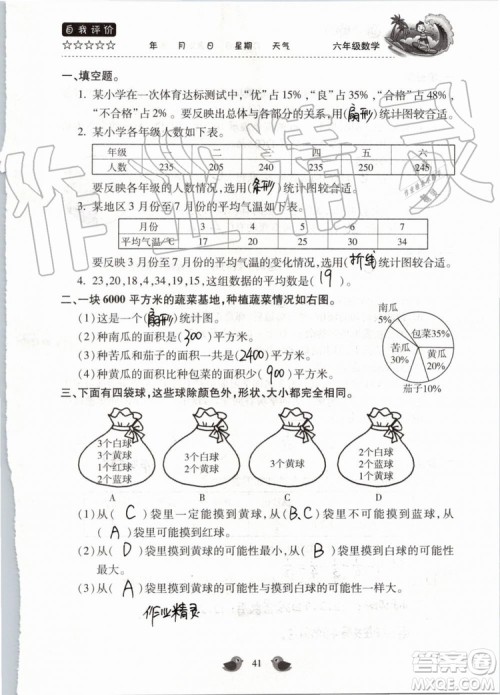 自我评价
☆☆☆☆☆ 年 月 日 星期 天气 六年级数学
一、填空题。
1. 某小学在一次体育达标测试中,“优”占 15%,“良”占 35%,“合格”占 48%,
“不合格”占 2%。要反映出总体与各部分的关系,用(扇形)统计图较合适。
2. 某小学各年级人数如下表。
年级 一 二 三 四 五 六
人数 235 205 265 260 250 245
要反映各年级的人数情况,选用(条形)统计图较合适。
3. 某地区 3 月份至 7 月份的平均气温如下表。
月份 3月份 4月份 5月份 6月份 7月份
平均气温/℃ 9 14 17 22 31
要反映 3 月份至 7 月份的平均气温的变化情况,选用(折线)统计图较合适。
4. 23,20,18,4,34,19,15,这组数据的平均数是(19)。
二、一块 6000 平方米的蔬菜基地,种植蔬菜情况如右图。
(1)这是一个(扇形)统计图。
(2)种南瓜的面积是(300)平方米。
(3)种苦瓜和茄子的面积一共是(2400)平方米。
(4)种包菜的面积比种黄瓜的面积多(900)平方米。
南瓜
5%
包菜35%
苦瓜
30%
黄瓜
20%
茄子10%
三、下面有四袋球,这些球除颜色外,形状、大小都完全相同。
3个白球
3个黄球
1个红球
2个蓝球
A
3个黄球
2个蓝球
B
3个黄球
C
2个白球
1个黄球
2个蓝球
D
(1)从(C)袋里一定能摸到黄球,从(B、C)袋里不可能摸到白球,从
(A)袋里可能摸到红球。
(2)从(D)袋里摸到黄球的可能性最小,从(D)袋里摸到白球的可能性
最大。
(3)从(A)袋里摸到黄球的可能性与摸到白球的可能性一样大。
作业精灵
41
作业精灵